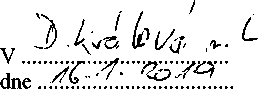 V D. Králové n. L
dne 16. 1. 2019